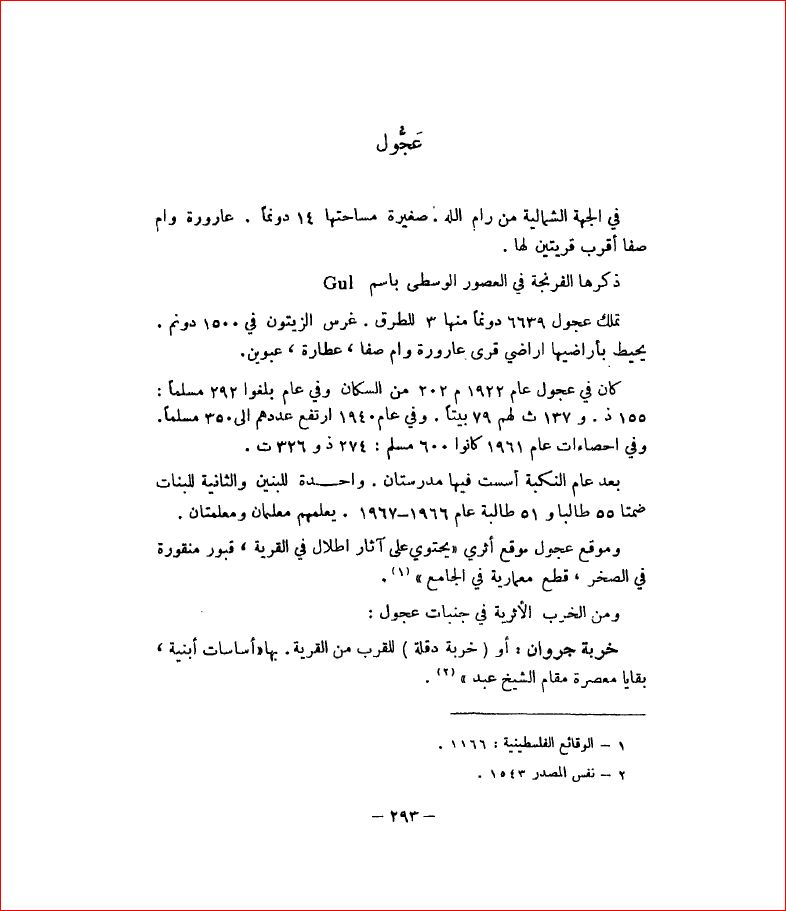 عَجُّول
في الجهة الشمالية من رام الله . صغيرة مساحتها ١٤ دونماً . عارورة وام
صفا أقرب قريتين لها .
ذكرها الفرنجة في العصور الوسطى باسم Gul
تملك عجول ٦٦٣٩ دونماً منها ٣ للطرق . غرس الزيتون في ١٥٠٠ دونم .
يحيط بأراضيها اراضي قرى عارورة وام صفا ، عطارة ، عبوين.
كان في عجول عام ١٩٢٢ م ٢٠٢ من السكان وفي عام بلغوا ٢٩٢ مسلماً :
١٥٥ ذ . و ١٣٧ ث لهم ٧٩ بيتاً . وفي عام ١٩٤٠ ارتفع عددهم الى ٣٥٠ مسلماً.
وفي احصاءات عام ١٩٦١ كانوا ٦٠٠ مسلم : ٢٧٤ ذ و ٣٢٦ ت .
بعد عام النكبة أسست فيها مدرستان . واحـــدة للبنين والثانية للبنات
ضمتا ٥٥ طالبا و ٥١ طالبة عام ١٩٦٦–١٩٦٧ . يعلمهم معلمان ومعلمتان .
وموقع عجول موقع أثري «يحتوي على آثار اطلال في القرية ، قبور منقورة
في الصخر ، قطع معمارية في الجامع » (١) .
ومن الخرب الأثرية في جنبات عجول :
خربة جروان : أو ( خربة دقلة ) للقرب من القرية. بها «أساسات أبنية ،
بقايا معصرة مقام الشيخ عبد » (٢) .
١ – الوقائع الفلسطينية : ١١٦٦ .
٢ – نفس المصدر ١٥٤٣ .
– ٢٩٣ –